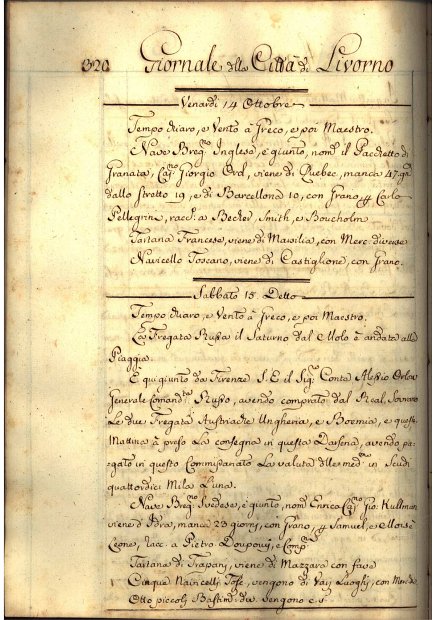 320 Giornale della Città di Livorno
Venardi 14 Ottobre
Tempo chiaro, e Vento à Greco, e poi Maestro.
Nave Breg.no Inglese, è giunto, nom.o il Pacchetto di
Granata, Cap.no Giorgio Ord, viene di Quebec, manca 47. g.ni
dallo Stretto 19, e di Barcellona 10, con Grano p Carlo
Pellegrini, racc. a Becker, Smith, e Boucholm
Tartana Francese, viene di Marsilia, con Merc. diverse
Navicello Toscano, viene di Castiglione, con Grano.
Sabbato 15. Detto
Tempo chiaro, e Vento à Greco, e poi Maestro.
La Fregata Russa il Saturno dal Molo è andata alla
Piaggia.
È qui giunto da Firenze S. E. il Sig.r Conte Alessio Orlow
Generale Comand.te Russo, avendo comprato dal Real Sovrano
Le due Fregate Austriache Ungheria, e Boemia, e questa
Mattina à preso La consegna in questa Darsena, avendo pa=
gato in questo Commissariato La valuta delle med.me in Scudi
quattordici Mila L'una.
Nave Breg.no Svedese, è giunto, nom.o Enrica Cap.no Gio. Kullman
viene d'Idra, manca 25 giorni, con Grano, p Samuel, e Moisè
Leone, racc. a Pietro Doupouy, e Comp.
Tartana di Trapani, viene di Mazzara con fave
Cinque Navicelli Tosc. vengono di Varj Luoghi, con Merc. d.e
Otto piccoli Bastim. div. vengono c.s.